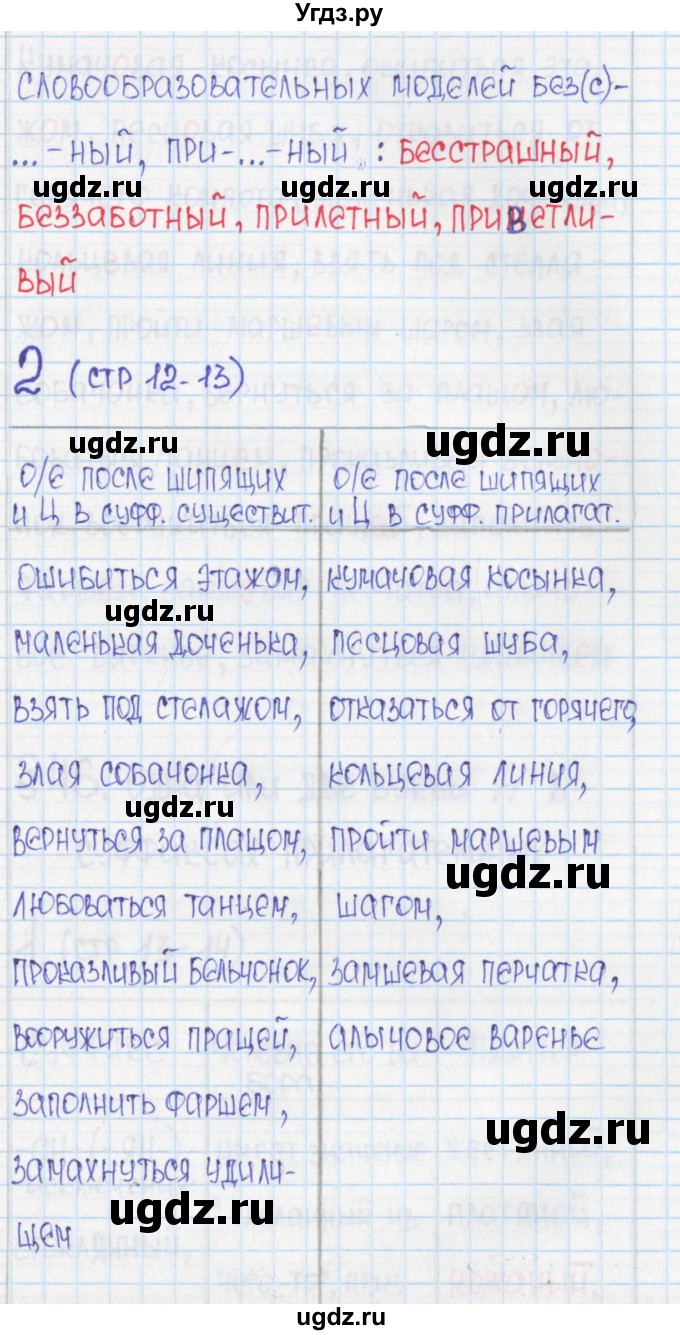 Угдз.ру
словообразовательных моделей без(с)-
ugdz.ru ugdz.ru
...-ный, при-...-ный : бесстрашный,
беззаботный, прилетный, приветли-
вый
2 (стр 12-13)
ugdz.ru ugdz.ru
о/е после шипящих
и ц в суфф. существит.
о/е после шипящих
и ц в суфф. прилагат.
ошибиться этажом,
ugdz.ru
маленькая доченька,
взять под стелажом,
злая собачонка,
ugdz.ru
вернуться за плащом,
любоваться танцем,
проказливый бельчонок,
вооружиться пращей,
заполнить фаршем,
замахнуться удили-
ugdz.ru
щем
кумачовая косынка,
песцовая шуба,
отказаться от горячего,
кольцевая линия,
пройти маршевым
ugdz.ru
шагом,
замшевая перчатка,
алычовое варенье
ugdz.ru
ugdz.ru